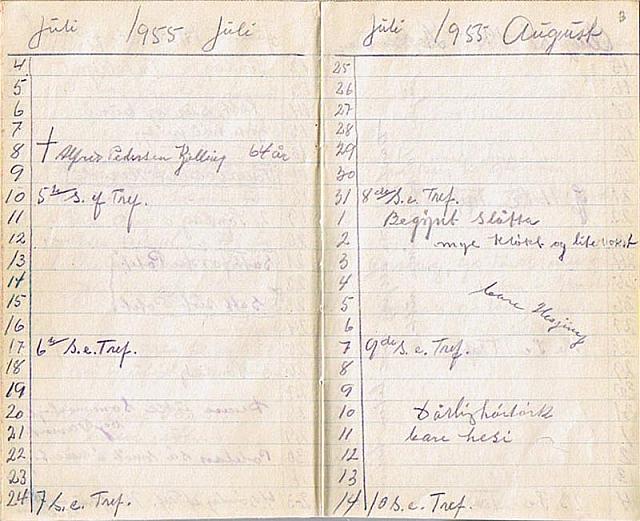 Juli 1955 Juli
4
5
6
7
8 † Alfred Pedersen Kjelling 64 år
9
10 5te S. ef Tref.
11
12
13
14
15
16
17 6te S.e. Tref.
18
19
20
21
22
23
24 7 S.e. Tref.
Juli 1955 August 3
25
26
27
28
29
30
31 8de S.e. Tref.
1 Begÿnt Slåtta
2 mye og lite vokst
3
4
5 bare Hesjing
6
7 9de S.e. Tref.
8
9
10 Dårlig
11 bare hesi
12
13
14 10 S.e. Tref.